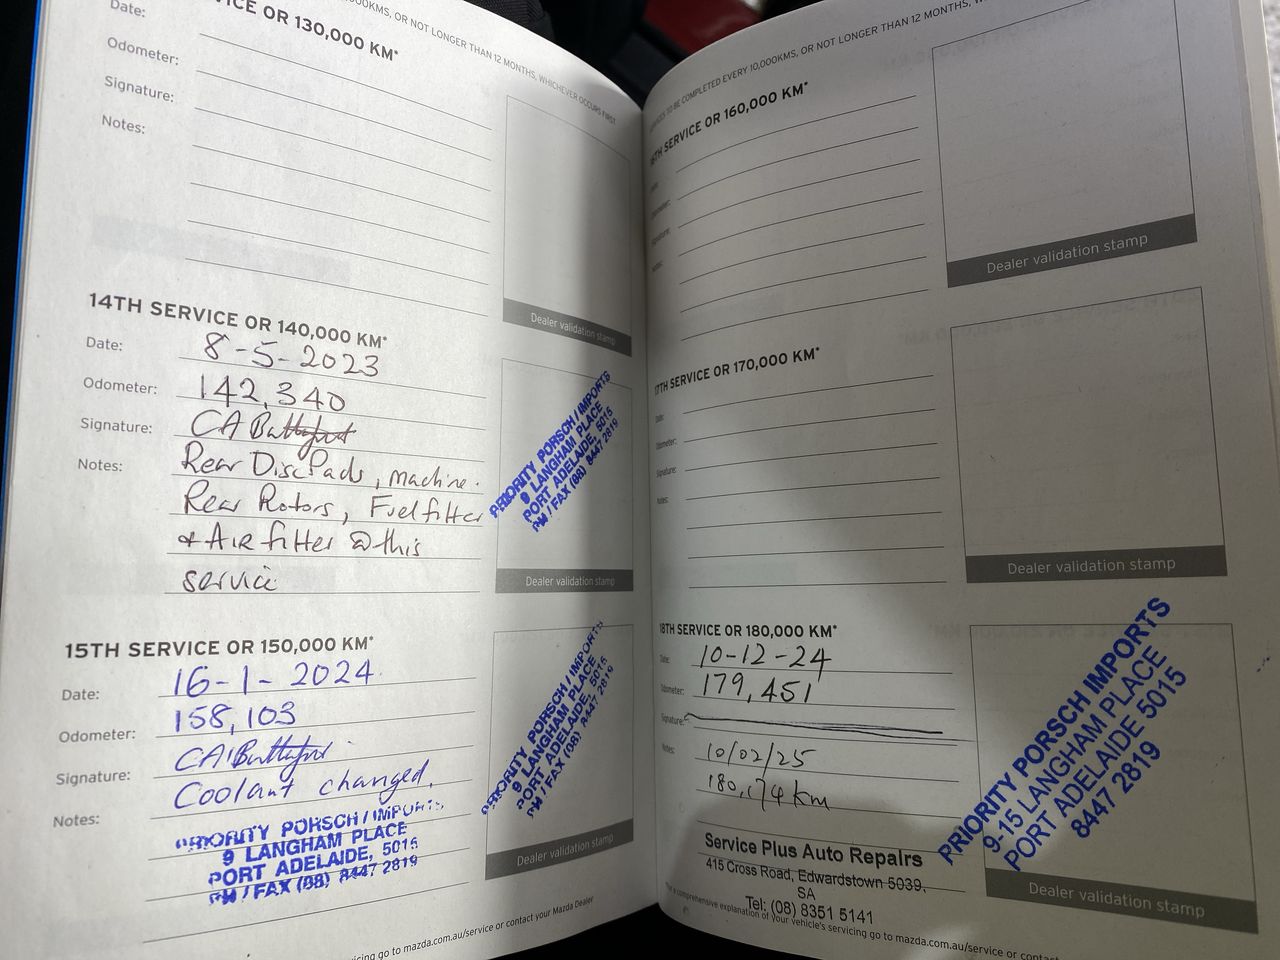 000KMS, OR NOT LONGER THAN 12 MONTHS, WHICHEVER OCCURS FIRST
VICE OR 130,000 KM*
Date:
Odometer:
Signature:
Notes:
Dealer validation stamp
14TH SERVICE OR 140,000 KM*
Date: 8-5-2023
Odometer: 142,340
Signature: CA
Notes: Rear Disc Pads, machine.
Rear Rotors, Fuel filter
& AIR filter @ this
service
PRIORITY PORSCH / IMPORTS
9 LANGHAM PLACE
PORT ADELAIDE, 5015
PH / FAX (08) 8447 2819
Dealer validation stamp
15TH SERVICE OR 150,000 KM*
Date: 16-1-2024.
Odometer: 158,103
Signature: CA
Notes: Coolant changed.
PRIORITY PORSCH / IMPORTS
9 LANGHAM PLACE
PORT ADELAIDE, 5015
PH / FAX (08) 8447 2819
PRIORITY PORSCH / IMPORTS
9 LANGHAM PLACE
PORT ADELAIDE, 5015
PH / FAX (08) 8447 2819
Dealer validation stamp
icing go to mazda.com.au/service or contact your Mazda Dealer
SERVICES TO BE COMPLETED EVERY 10,000KMS, OR NOT LONGER THAN 12 MONTHS,
16TH SERVICE OR 160,000 KM*
Date:
Odometer:
Signature:
Notes:
Dealer validation stamp
17TH SERVICE OR 170,000 KM*
Date:
Odometer:
Signature:
Notes:
Dealer validation stamp
18TH SERVICE OR 180,000 KM*
Date: 10-12-24
Odometer: 179,451
Signature:
Notes: 10/02/25
180,174 km
Service Plus Auto Repairs
415 Cross Road, Edwardstown 5039,
SA
Tel: (08) 8351 5141
PRIORITY PORSCH IMPORTS
9-15 LANGHAM PLACE
PORT ADELAIDE 5015
8447 2819
Dealer validation stamp
comprehensive explanation of your vehicle's servicing go to mazda.com.au/service or contact